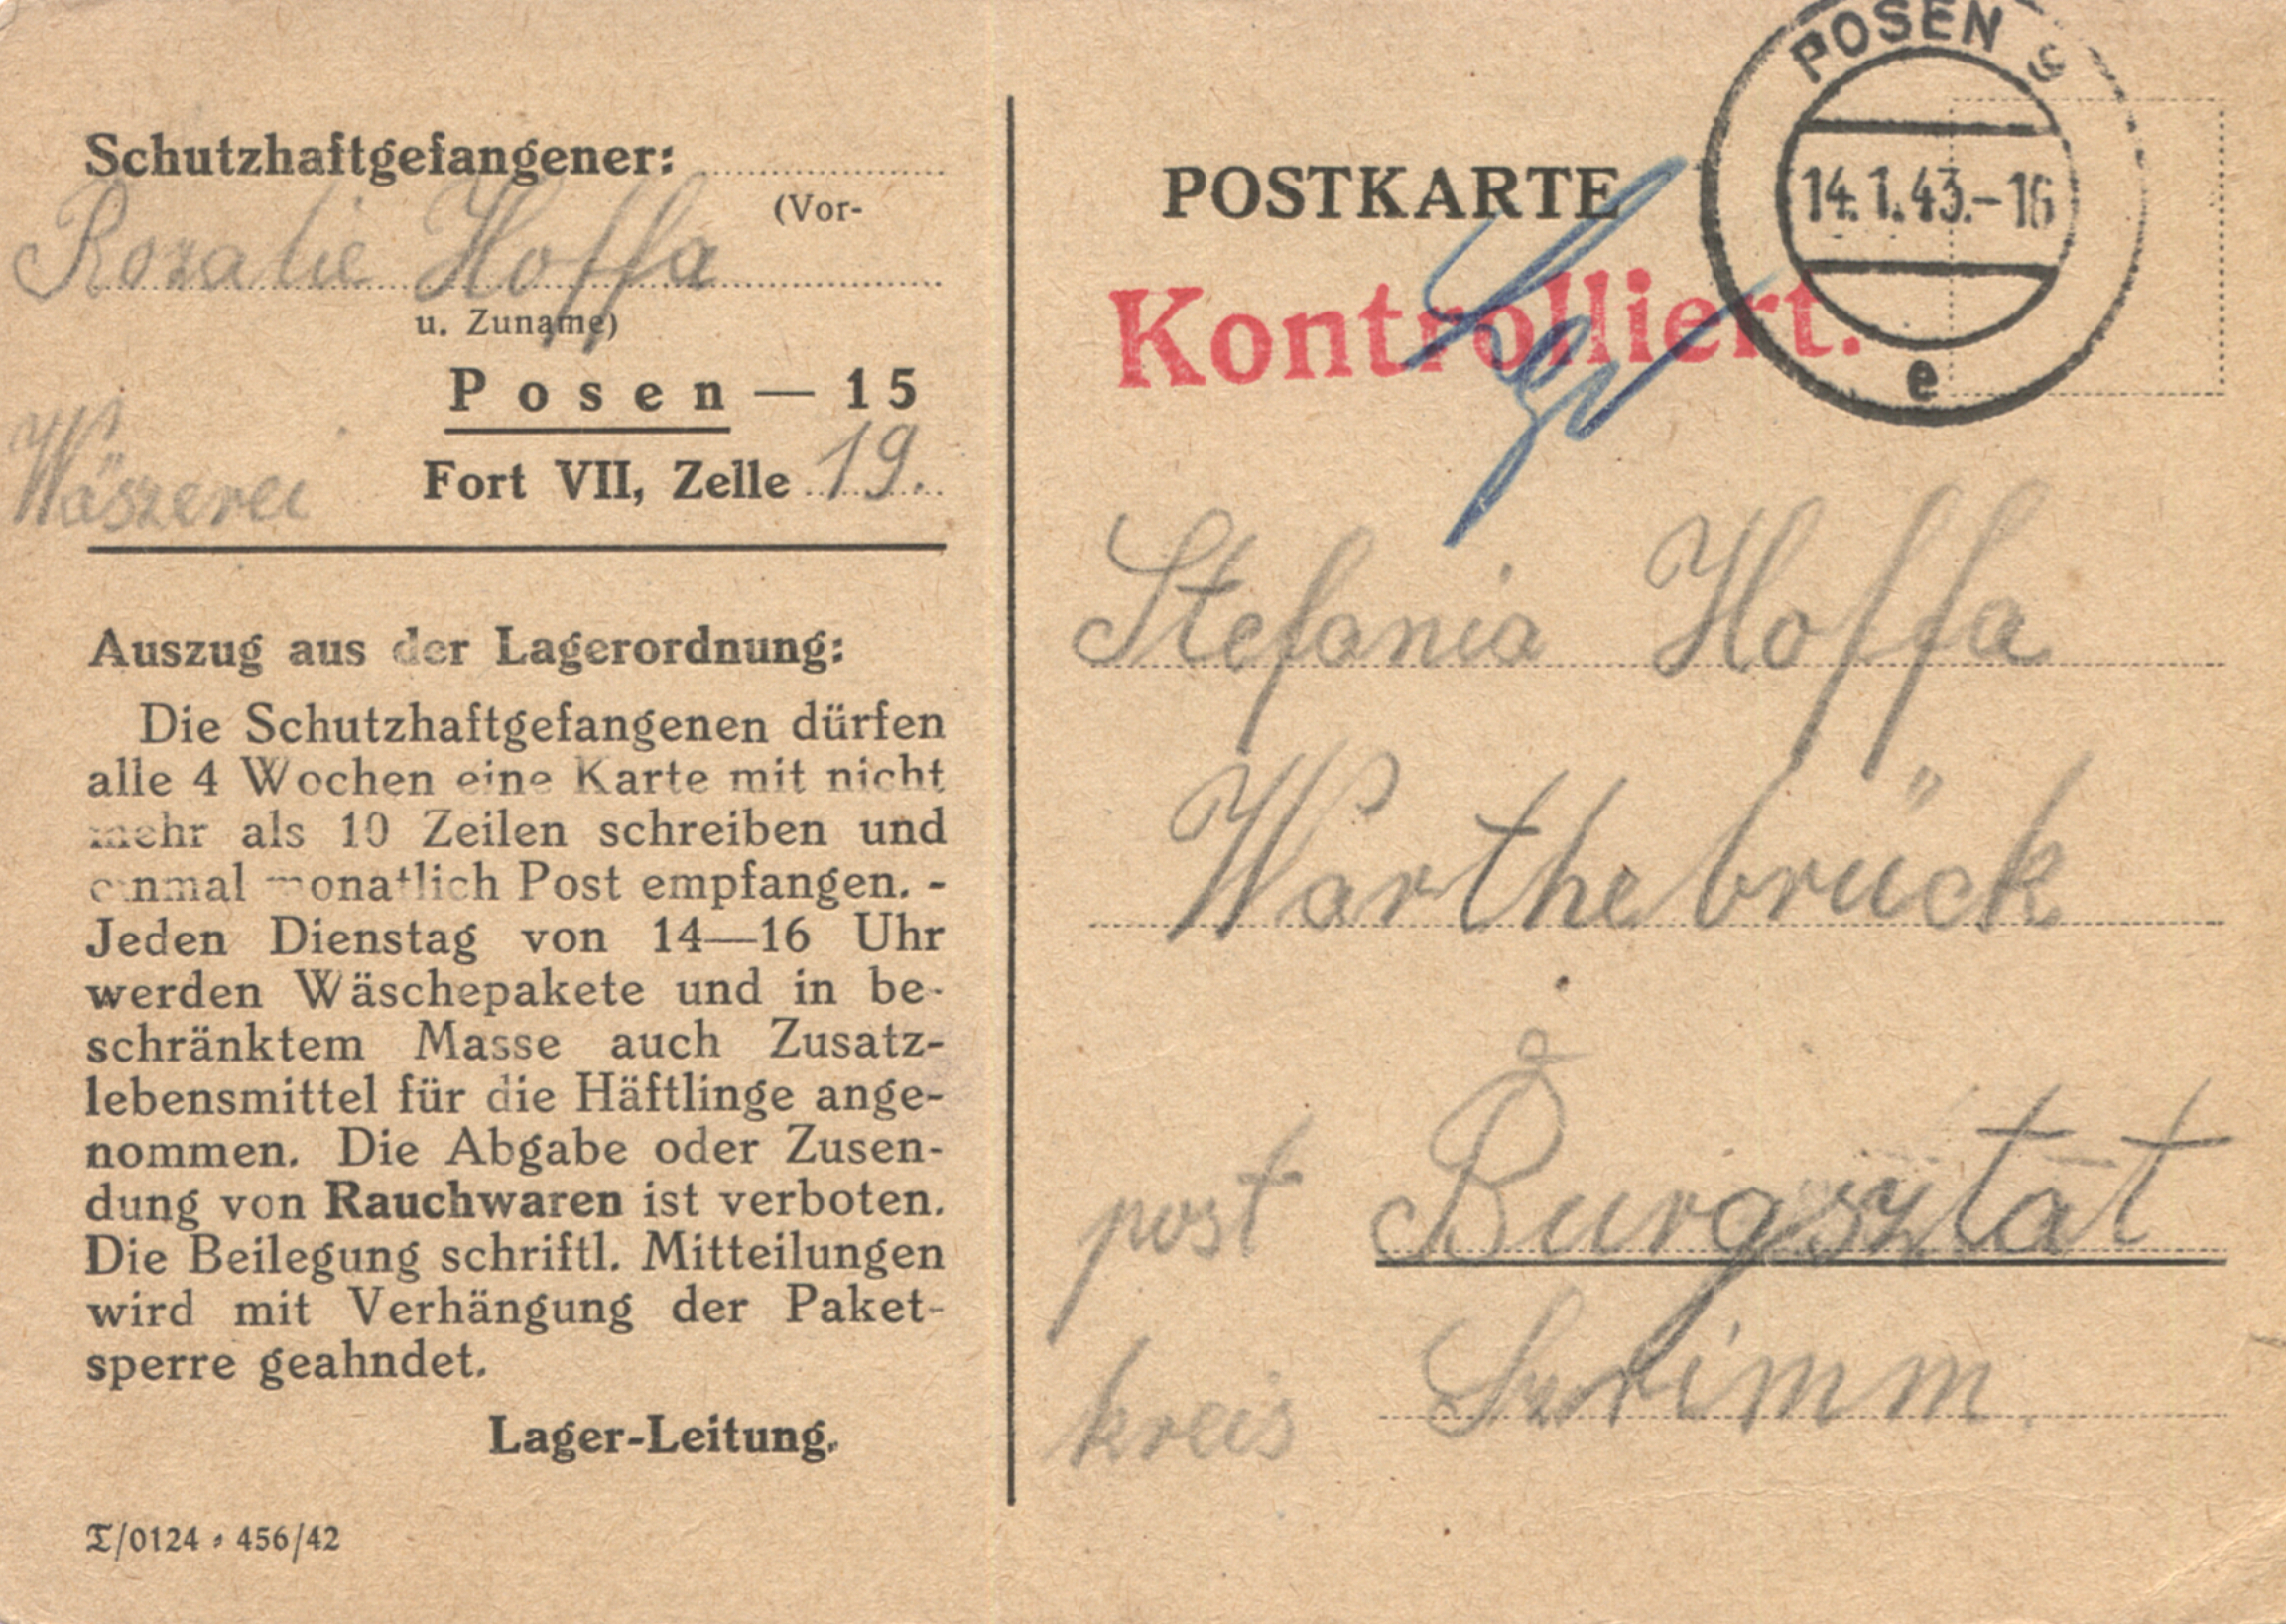 Schutzhaftgefangener:
(Vor-
Rozalie Hoffa
u. Zuname)
Posen — 15
Wäszerei
Fort VII, Zelle 19.
Auszug aus der Lagerordnung:
Die Schutzhaftgefangenen dürfen
alle 4 Wochen eine Karte mit nicht
mehr als 10 Zeilen schreiben und
einmal monatlich Post empfangen. -
Jeden Dienstag von 14—16 Uhr
werden Wäschepakete und in be-
schränktem Masse auch Zusatz-
lebensmittel für die Häftlinge ange-
nommen. Die Abgabe oder Zusen-
dung von Rauchwaren ist verboten.
Die Beilegung schriftl. Mitteilungen
wird mit Verhängung der Paket-
sperre geahndet.
Lager-Leitung.
T/0124 • 456/42
POSTKARTE
Kontrolliert.
POSEN 9
14.1.43.-16
e
Stefania Hoffa
Warthebrück
post Burgsztat
kreis Szrimm.